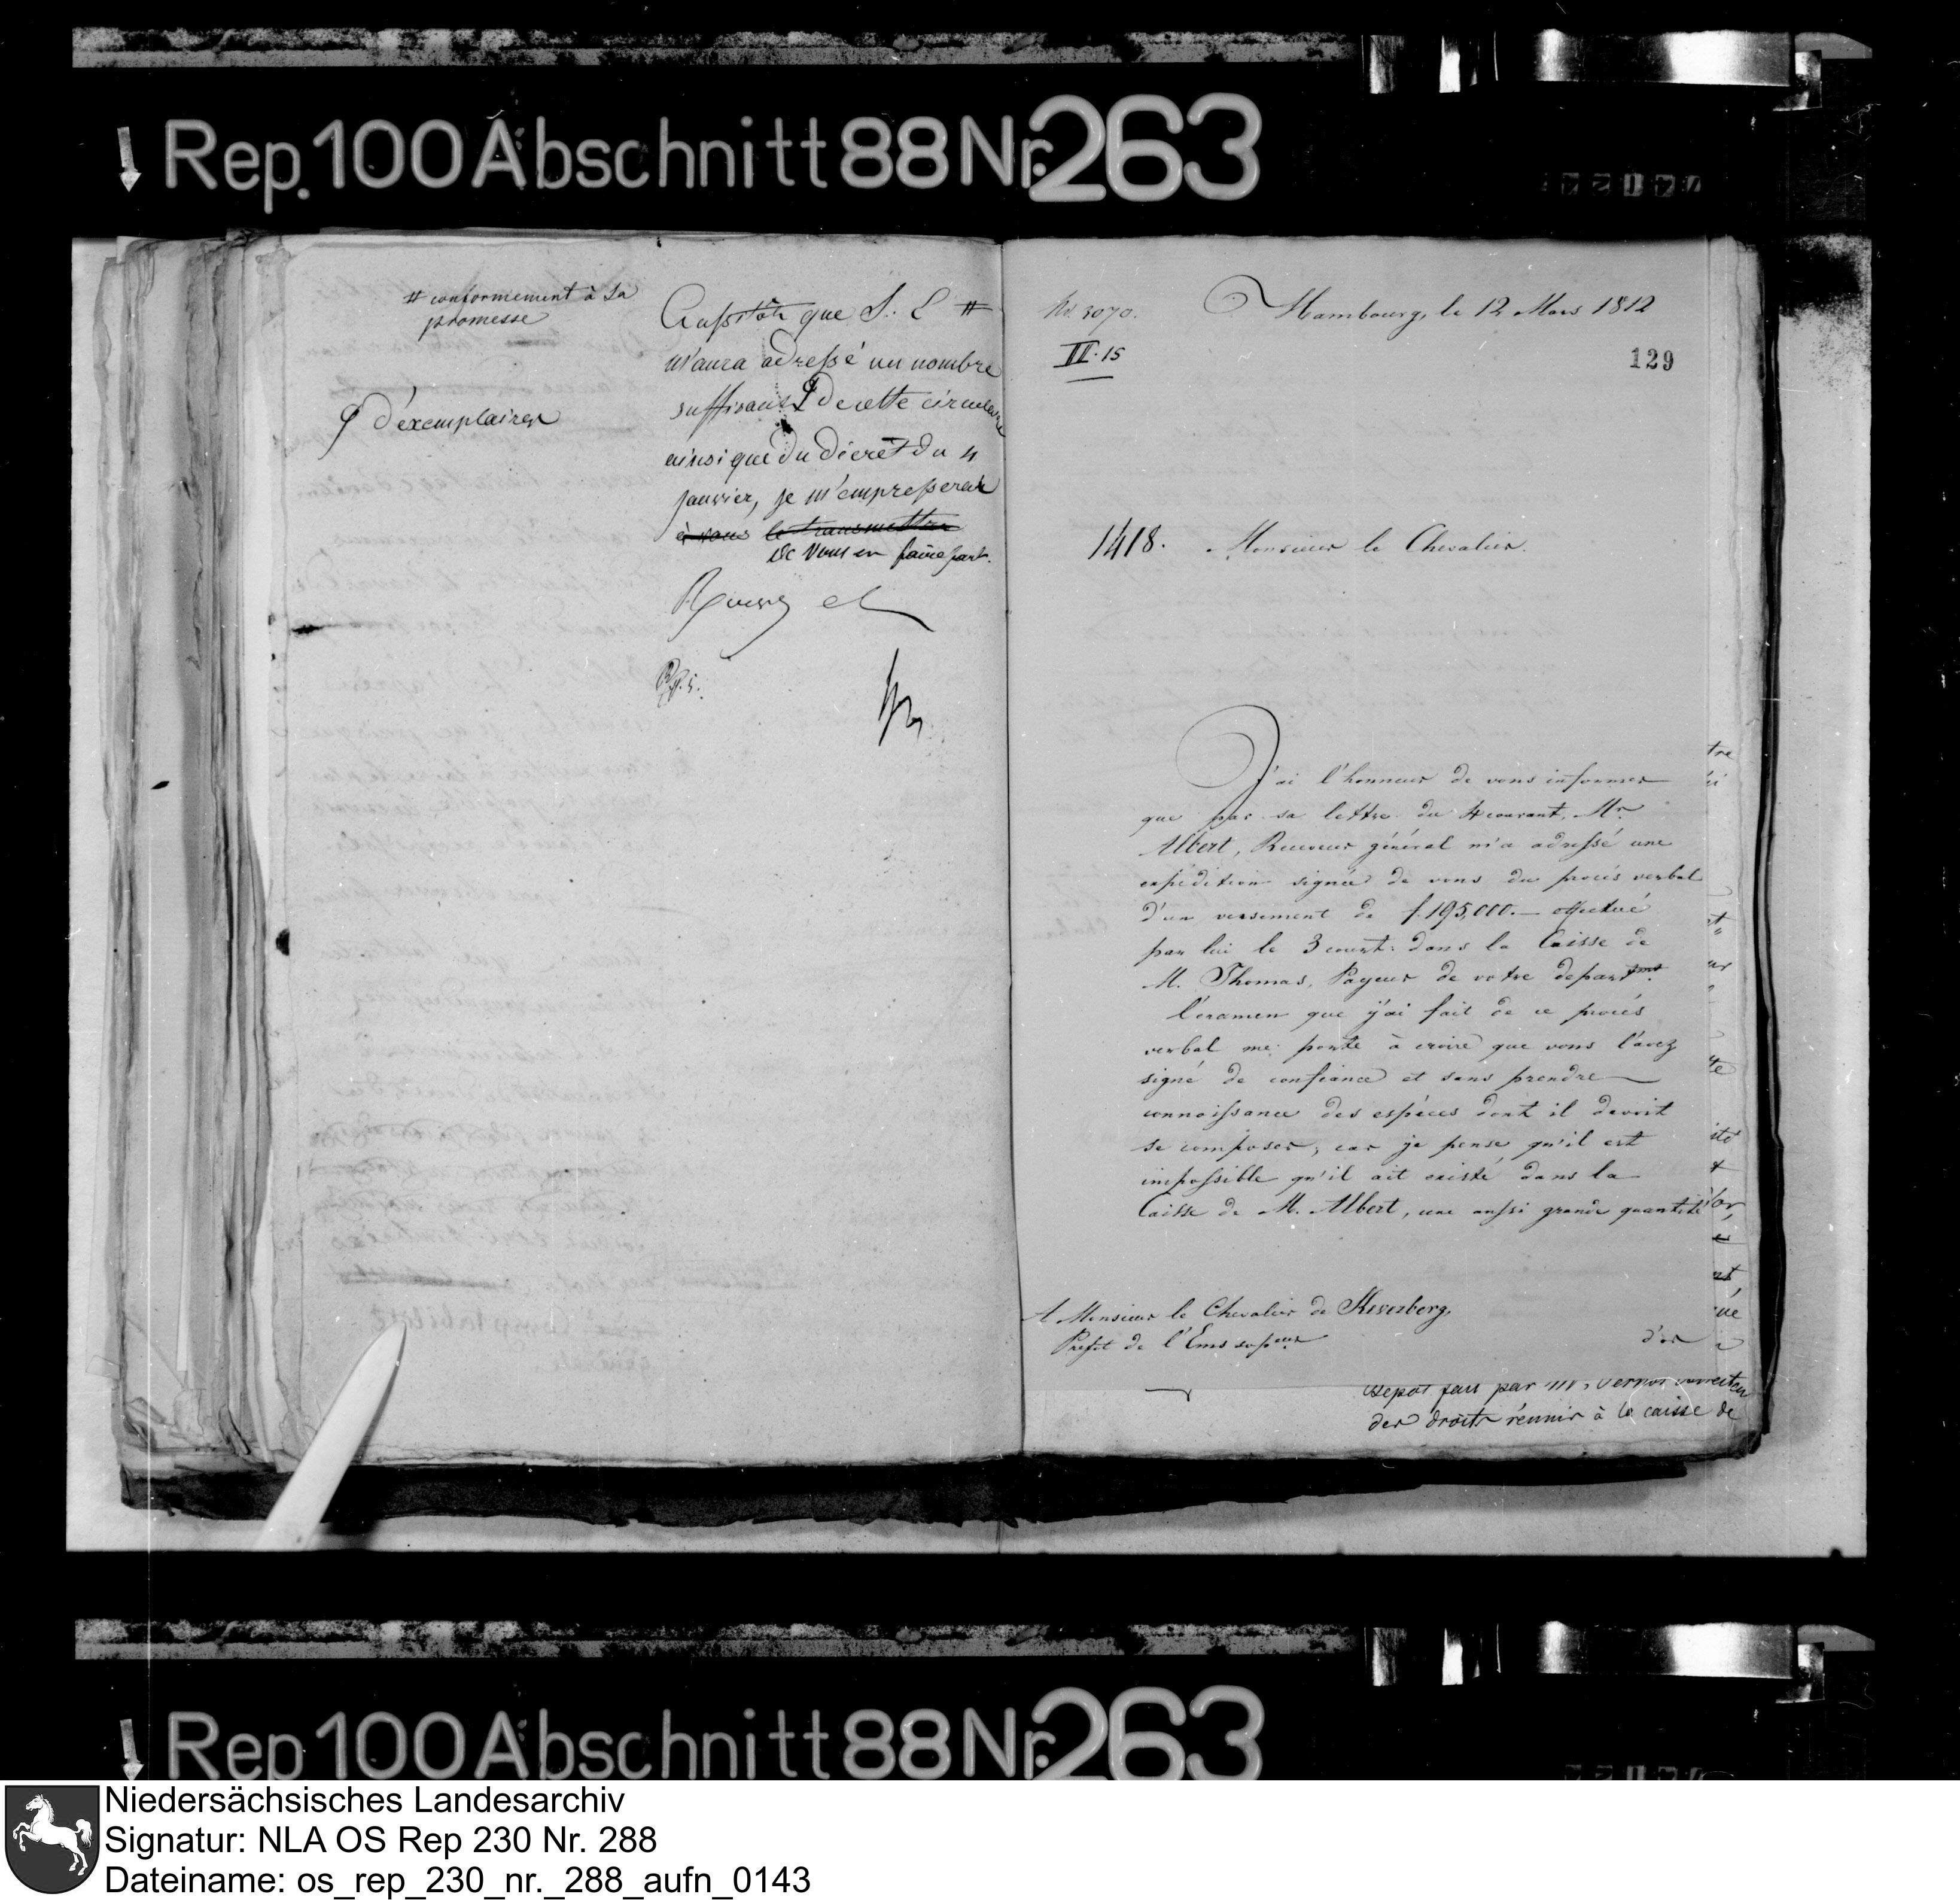 Rep. 100 Abschnitt 88 Nr. 263
# conformement à Sa
promesse
Aussitôt que S. E #
m'aura adressé un nombre
suffisant de cette circulaire
d'exemplaires
ainsi que du décret du 4
janvier, je m'empresserai
à vous le transmettre
de vous en faire part.
No. 3070.
Hambourg, le 12 Mars 1812
II. 15
129
1418. Monsieur le Chevalier.
J'ai l'honneur de vous informer
que par sa lettre du 4 courant, Mr.
Albert, Receveur général m'a adressé une
expédition signée de vous du procès verbal
d'un versement de f. 195,000.— effectué
par lui le 3 court. dans la Caisse de
M. Thomas, Payeur de votre departemt.
l'examen que j'ai fait de ce procès
verbal me porte à croire que vous l'avez
signé de confiance et sans prendre
connoissance des espèces dont il devoit
se composer, car je pense qu'il est
impossible qu'il ait existé dans la
Caisse de M. Albert, une aussi grande quantité
A Monsieur le Chevalier de Keverberg,
Prefet de l'Ems supeur.
d'or
depot fait par Mr.
des droits réunis à la caisse de
Rep 100 Abschnitt 88 Nr. 263
Niedersächsisches Landesarchiv
Signatur: NLA OS Rep 230 Nr. 288
Dateiname: os_rep_230_nr._288_aufn_0143